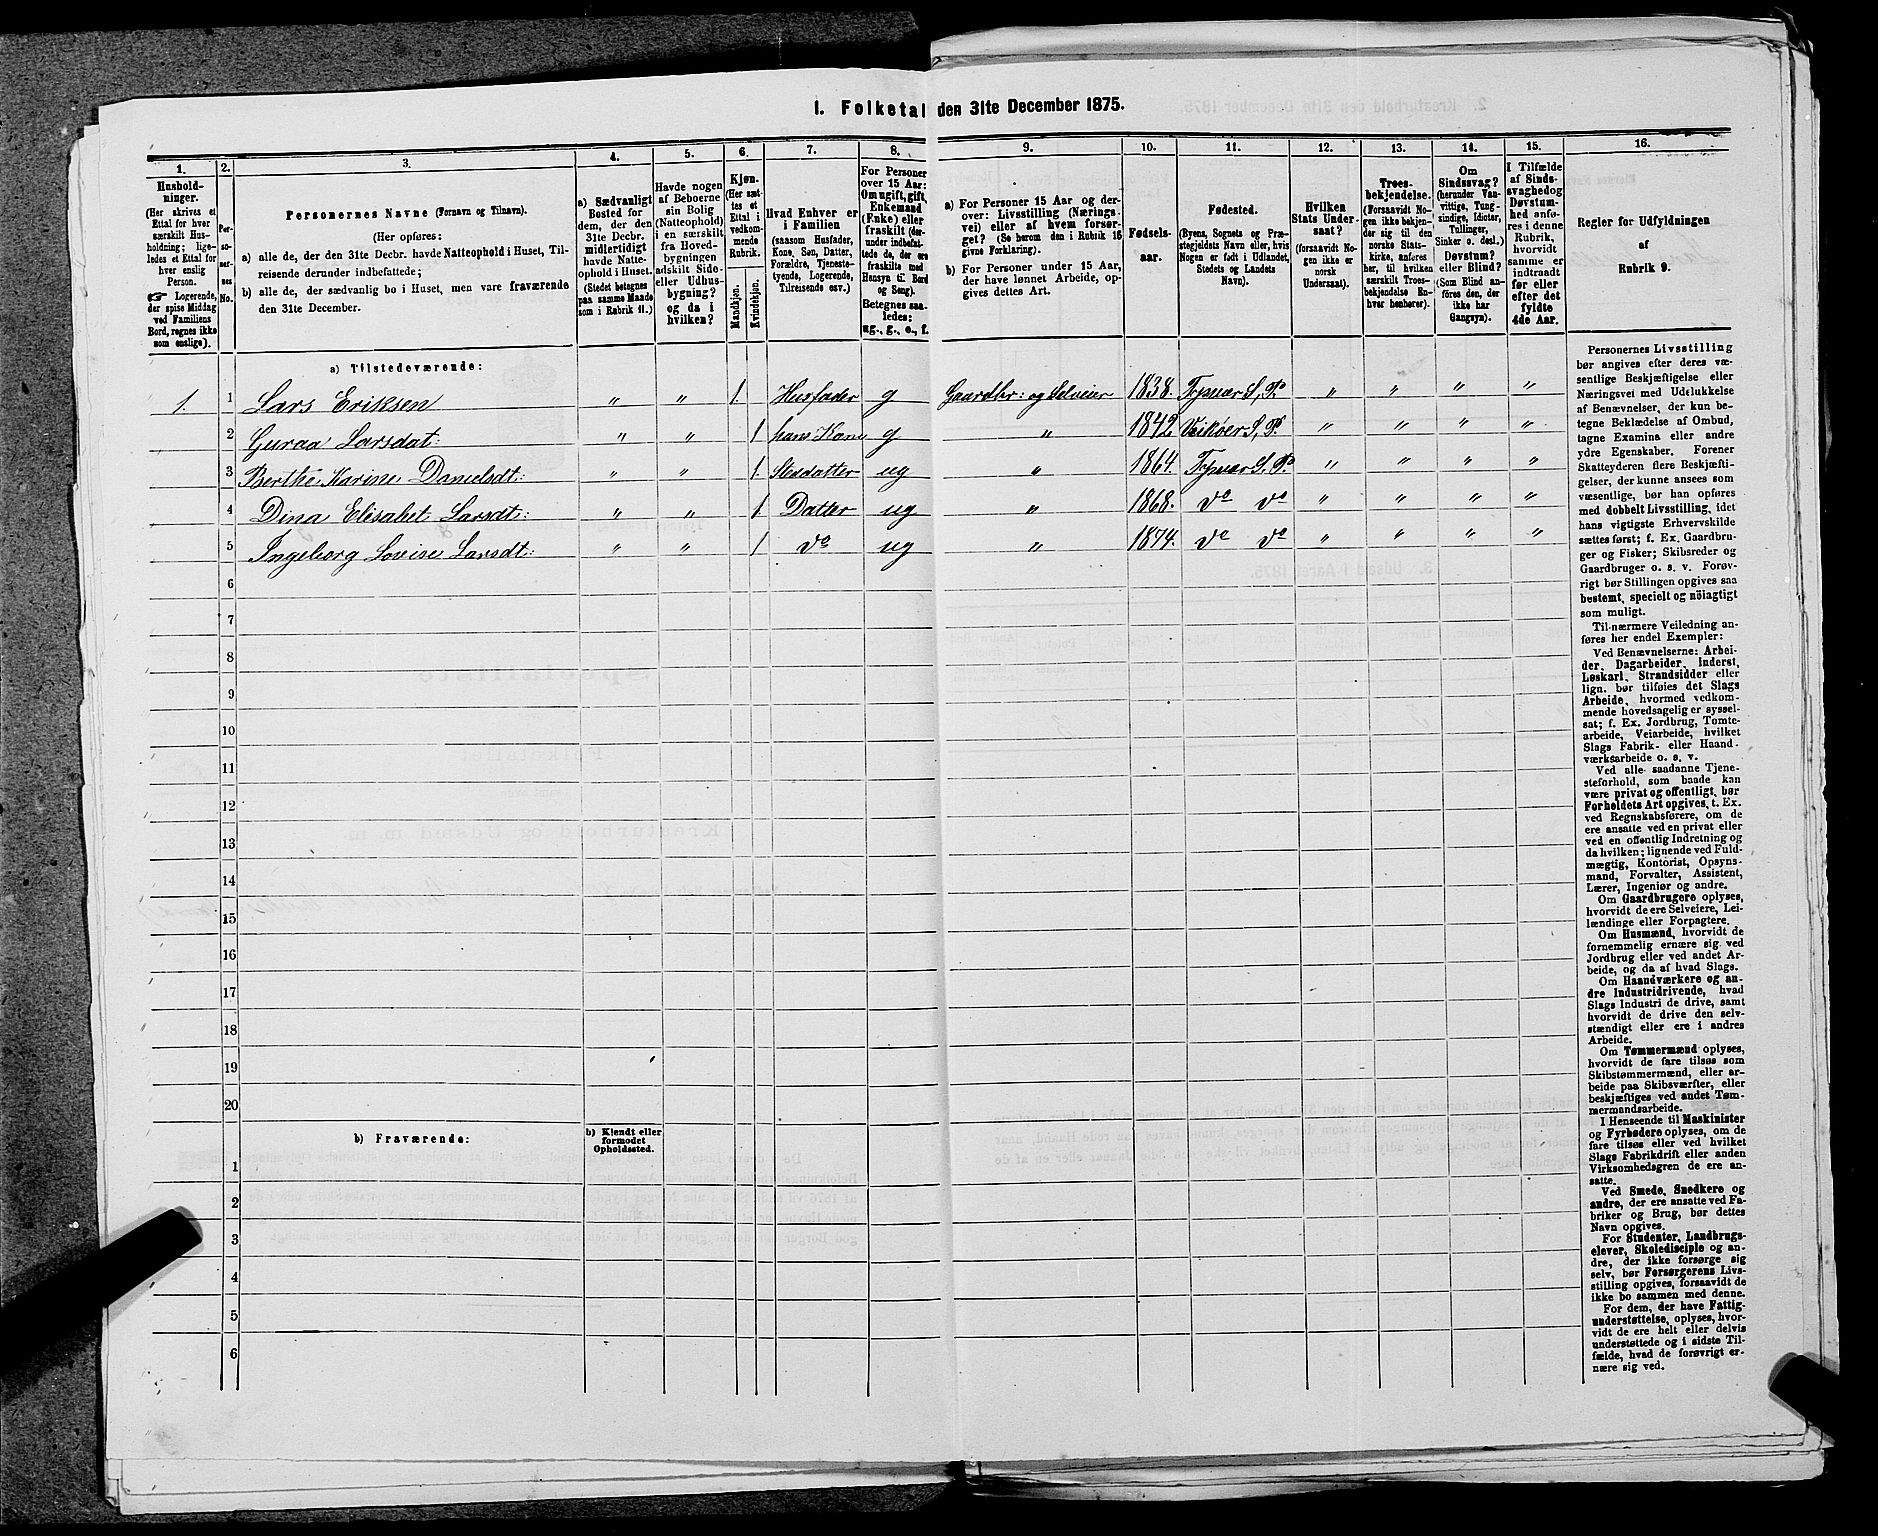 1. Folketal den 31te December 1875.
1.
Hushold-
ninger.
(Her skrives et
Ettal for hver
særskilt Hus-
holdning; lige-
ledes et Ettal for
hver enslig
Person.
☞ Logerende,
der spise Middag
ved Familiens
Bord, regnes ikke
som enslige).
2.
Per-
so-
ner-
nes
No.
3.
Personernes Navne (Fornavn og Tilnavn).
(Her opføres:
a) alle de, der den 31te Decbr. havde Natteophold i Huset, Til-
reisende derunder indbefattede;
b) alle de, der sædvanlig bo i Huset, men vare fraværende
den 31te December.
4.
a) Sædvanligt
Bosted for
dem, der den
31te Decbr.
midlertidigt
havde Natte-
ophold i Huset.
(Stedet betegnes
paa samme Maade
som i Rubrik 11.)
5.
Havde nogen
af Beboerne
sin Bolig
(Natteophold)
i en særskilt
fra Hoved-
bygningen
adskilt Side-
eller Udhus-
bygning?
og da i
hvilken?
6.
Kjøn.
(Her sæt-
tes et
Ettal i
vedkom-
mende
Rubrik.
Mandkjøn.
Kvindekjøn.
7.
Hvad Enhver er
i Familien
(saasom Husfader,
Kone, Søn, Datter,
Forældre, Tjeneste-
tyende, Logerende,
Tilreisende osv.)
8.
For Personer
over 15 Aar:
Om ugift, gift,
Enkemand
(Enke) eller
fraskilt (der-
under indbefat-
tede de, der ere
fraskilte med
Hensyn til Bord
og Seng).
Betegnes saa-
ledes:
ug., g., e., f.
9.
a) For Personer 15 Aar og der-
over: Livsstilling (Nærings-
vei) eller af hvem forsør-
get? (Se herom den i Rubrik 16
givne Forklaring).
b) For Personer under 15 Aar,
der have lønnet Arbeide, op-
gives dettes Art.
10.
Fødsels-
aar.
11.
Fødested.
(Byens, Sognets og Præ-
stegjeldets Navn eller, hvis
Nogen er født i Udlandet,
Stedets og Landets
Navn).
12.
Hvilken
Stats Under-
saat?
(forsaavidt No-
gen ikke er
norsk
Undersaat).
13.
Troes-
bekjendelse.
(Forsaavidt No-
gen ikke bekjen-
der sig til den
norske Stats-
kirke, anføres
her, til hvilken
særskilt Troes-
bekjendelse En-
hver henhører).
14.
Om
Sindssvag?
(herunder Van-
vittige, Tung-
sindige, Idioter,
Tullinger,
Sinker o. desl.)
Døvstum?
eller Blind?
(Som Blind an-
føres den, der
ikke har
Gangsyn).
15.
I Tilfælde
af Sinds-
svaghed og
Døvstum-
hed anfø-
res i denne
Rubrik,
hvorvidt
samme er
indtraadt
før eller
efter det
fyldte
4de Aar.
16.
Regler for Udfyldningen
af
Rubrik 9.
a) Tilstedeværende:
1. 1 Lars Eriksen " " 1. Husfader g Gaardbr: og Selveier 1838. Topnæs S, P. " " " "
2 Guraa Larsdat: " " 1 hans Kone g " 1842 Veikøer S, P. " " " "
3 Berthe Karine Danielsdt: " " 1 Stesdatter ug " 1864. S. P. " " " "
4 Dina Elisabet Larsdt: " " 1 Datter ug " 1868. do do " " " "
5 Ingeborg Lovise Larsdt: " " 1 do ug " 1874. do do " " " "
6
7
8
9
10
11
12
13
14
15
16
17
18
19
20
b) Fraværende:
b) Kjendt eller
formodet
Opholdssted.
1
2
3
4
5
6
Personernes Livsstilling
bør angives efter deres væ-
sentlige Beskjæftigelse eller
Næringsvei med Udelukkelse
af Benævnelser, der kun be-
tegne Beklædelse af Ombud,
tagne Examina eller andre
ydre Egenskaber. Forener
Skatteyderen flere Beskjæfti-
gelser, der kunne ansees som
væsentlige, bør han opføres
med dobbelt Livsstilling, idet
hans vigtigste Erhvervskilde
sættes først; f. Ex. Gaardbru-
ger og Fisker; Skibsreder og
Gaardbruger o. s. v. Forøv-
rigt bør Stillingen opgives saa
bestemt, specielt og nöiagtigt
som muligt.
Til nærmere Veiledning an-
føres her endel Exempler:
Ved Benævnelserne: Arbei-
der, Dagarbeider, Inderst,
Løskarl, Strandsidder eller
lign. bør tilføies det Slags
Arbeide, hvormed vedkom-
mende hovedsagelig er syssel-
sat; f. Ex. Jordbrug, Tomte-
arbeide, Veiarbeide, hvilket
Slags Fabrik- eller Haand-
værksarbeide o. s. v.
Ved alle saadanne Tjene-
steforhold, som baade kan
være privat og offentligt, bør
Forholdets Art opgives, t. Ex.
ved Regnskabsførere, om de
ere ansatte ved en privat eller
ved en offentlig Indretning og
da hvilken; lignende ved Fuld-
mægtig, Kontorist, Opsyns-
mand, Forvalter, Assistent,
Lærer, Ingeniør og andre.
Om Gaardbrugere oplyses,
hvorvidt de ere Selveiere, Lei-
lændinge eller Forpagtere.
Om Husmænd, hvorvidt de
fornemmelig ernære sig ved
Jordbrug eller ved andet Ar-
beide, og da af hvad Slags.
Om Haandværkere og an-
dre Industridrivende, hvad
Slags Industri de drive, samt
hvorvidt de drive den selv-
stændigt eller ere i andres
Arbeide.
Om Tømmermænd oplyses,
hvorvidt de fare tilsøs som
Skibstømmermænd, eller ar-
beide paa Skibsværfter, eller
beskjæftiges ved andet Tøm-
mermandsarbeide.
I Henseende til Maskinister
og Fyrbødere oplyses, om de
fare tilsøs eller ved hvilket
Slags Fabrikdrift eller anden
Virksomhedsgren de ere an-
satte.
Ved Smede, Snedkere og
andre, der ere ansatte ved Fa-
briker og Brug, bør dettes
Navn opgives.
For Studenter, Landbrugs-
elever, Skoledisciple og an-
dre, der ikke forsørge sig
selv, bør Forsørgerens Livs-
stilling opgives, forsaavidt de
ikke bo sammen med denne.
For dem, der have Fattig-
understøttelse, oplyses, hvor-
vidt de ere helt eller delvis
understøttede og i sidste Til-
fælde, hvad de forøvrigt er-
nære sig ved.